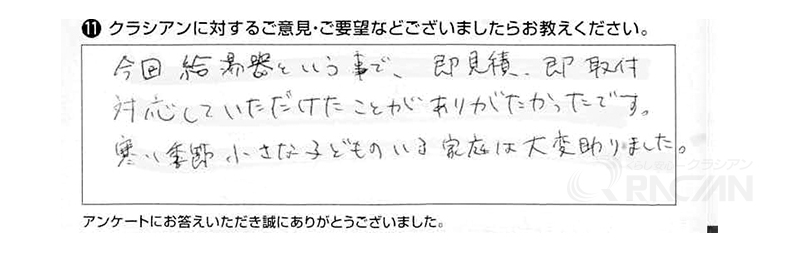 ⓫ クラシアンに対するご意見・ご要望などございましたらお教えください。
今回 給湯器という事で、即見積、即取付
対応していただけたことがありがたかったです。
寒い季節 小さな子どものいる家庭は大変助りました。
クラシアン
アンケートにお答えいただき誠にありがとうございました。